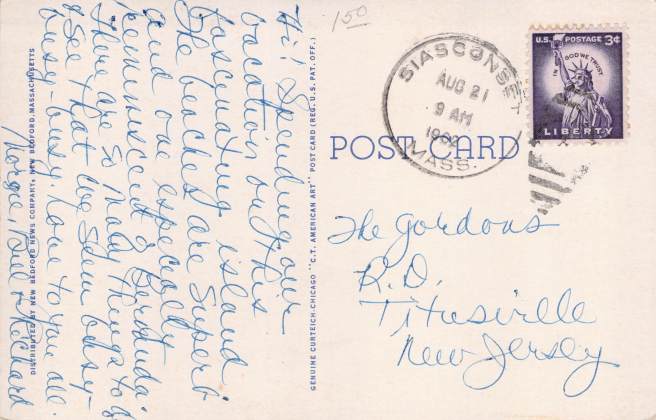 Hi! Spending our
vacation on this
fascinating island
The beaches are superb
and one especially
reminiscent of Bermuda.
There are so many things to do
& see that we seem busy-
busy-busy. Love to you all.
Norge, Bill & Richard
DISTRIBUTED BY NEW BEDFORD NEWS COMPANY, NEW BEDFORD, MASSACHUSETTS
GENUINE CURTEICH-CHICAGO "C.T. AMERICAN ART" POST CARD (REG. U.S. PAT. OFF.)
150
SIASCONSET
AUG 21
9 AM
MASS.
U.S. POSTAGE 3¢
IN GOD WE TRUST
LIBERTY
POST CARD
The Gordons
R.D.
Titusville
New Jersey